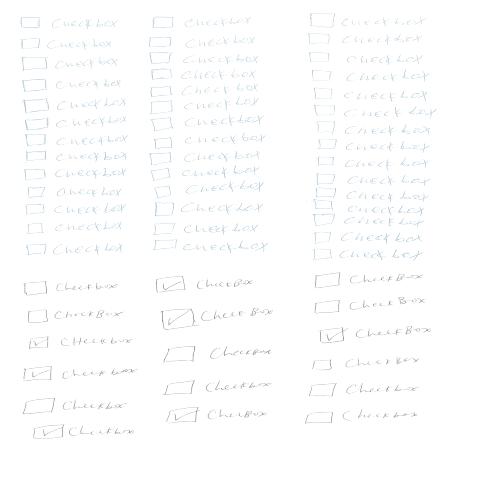 Checkbox
Checkbox
Check box
Check box
Check box
Check box
Check box
Check box
Check box
Check box
Check box
Check box
Check box
Checkbox
CheckBox
CHeckbox
Check box
Checkbox
Checkbox
Check box
Check box
Check box
Check box
Check box
Check box
Check box
Check box
Check box
Check box
Check box
Check box
Check box
Check box
CheckBox
Check Box
CheckBox
Checkbox
CheckBox
Check box
Check box
Check box
Check box
Check box
Check box
Check box
Check box
Check box
Check box
Check box
Check box
Check box
Check box
Check box
CheckBox
Check Box
Check Box
Checkbox
Checkbox
Checkbox